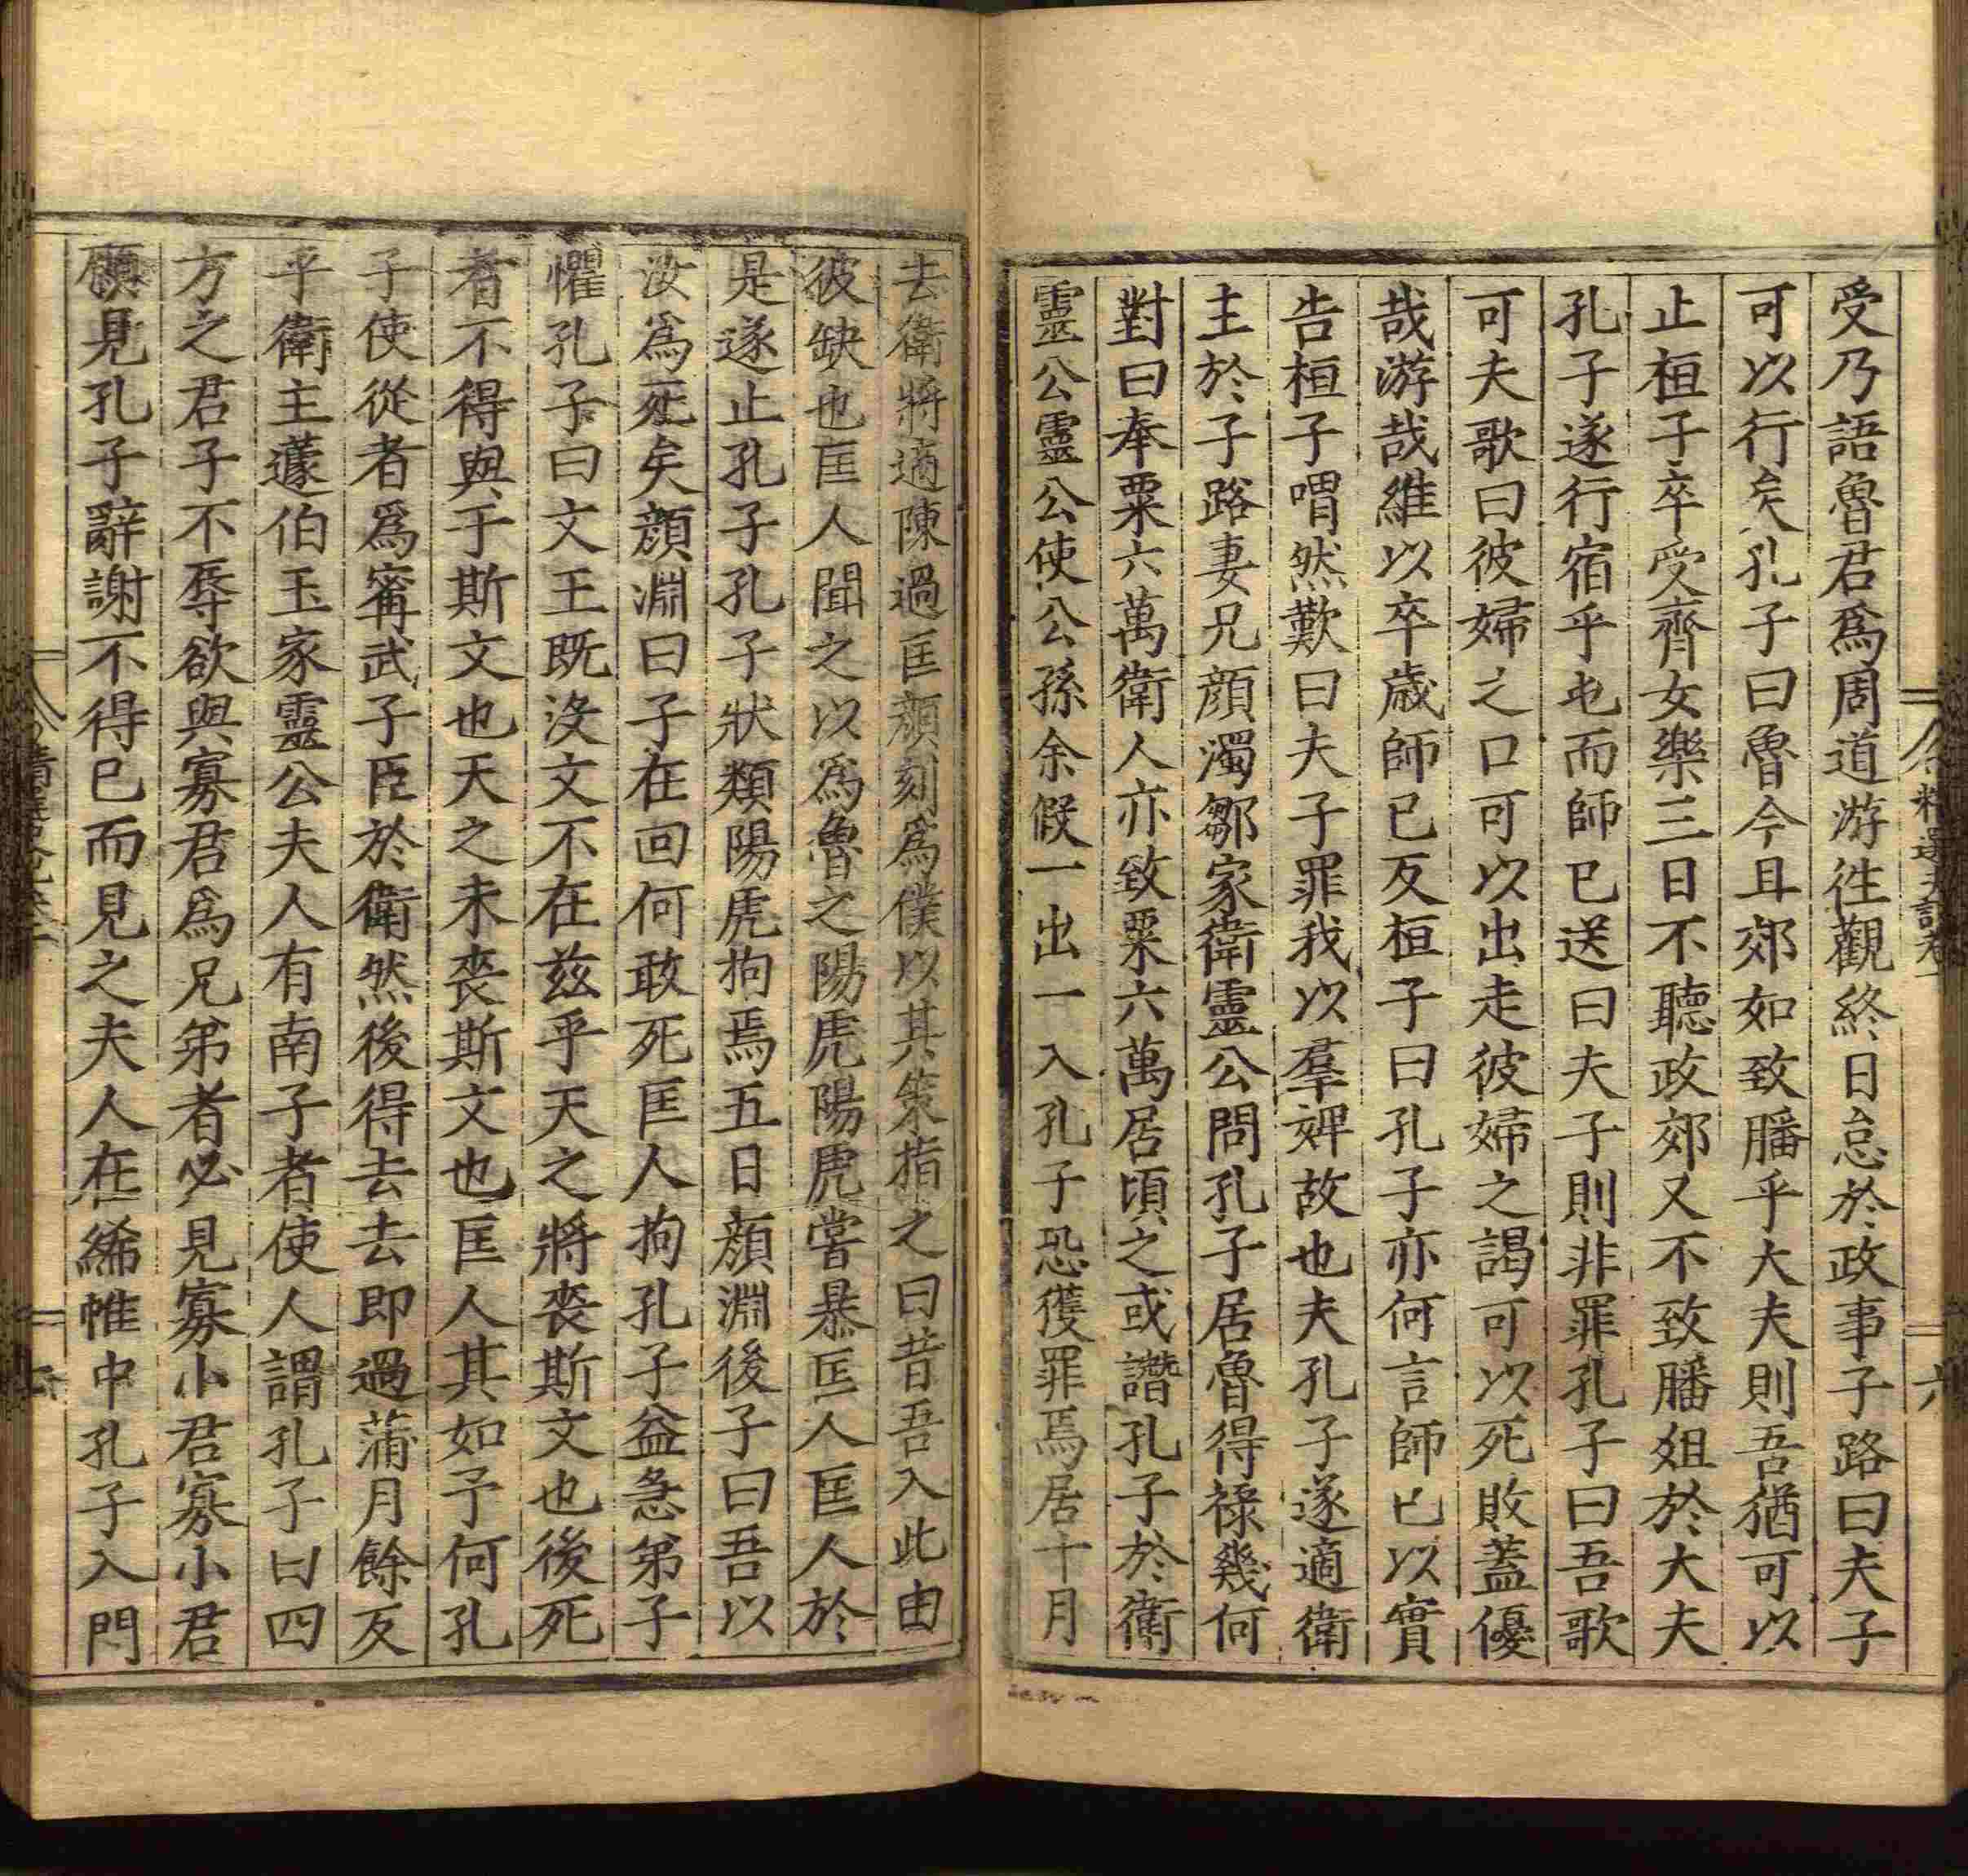 受乃語魯君爲周道游徃觀終日怠於政事子路曰夫子
可以行矣孔子曰魯今且郊如致膰乎大夫則吾猶可以
止桓子卒受齊女樂三日不聽政郊又不致膰俎於大夫
孔子遂行宿乎屯而師已送曰夫子則非罪孔子曰吾歌
可夫歌曰彼婦之口可以出走彼婦之謁可以死敗蓋優
哉游哉維以卒歲師已反桓子曰孔子亦何言師已以實
告桓子喟然歎曰夫子罪我以羣婢故也夫孔子遂適衛
主於子路妻兄顏濁鄒家衛靈公問孔子居魯得祿幾何
對曰奉粟六萬衛人亦致粟六萬居頃之或譖孔子於衛
靈公靈公使公孫余假一出一入孔子恐獲罪焉居十月
去衛將適陳過匡顏刻爲僕以其策指之曰昔吾入此由
彼缺也匡人聞之以爲魯之陽虎陽虎嘗暴匡人匡人於
是遂止孔子孔子狀類陽虎拘焉五日顏淵後子曰吾以
汝爲死矣顏淵曰子在回何敢死匡人拘孔子益急弟子
懼孔子曰文王既沒文不在兹乎天之將喪斯文也後死
者不得與于斯文也天之未喪斯文也匡人其如予何孔
子使從者爲甯武子臣於衛然後得去去即過蒲月餘反
乎衛主蘧伯玉家靈公夫人有南子者使人謂孔子曰四
方之君子不辱欲與寡君爲兄弟者必見寡小君寡小君
願見孔子辭謝不得已而見之夫人在絺帷中孔子入門
六